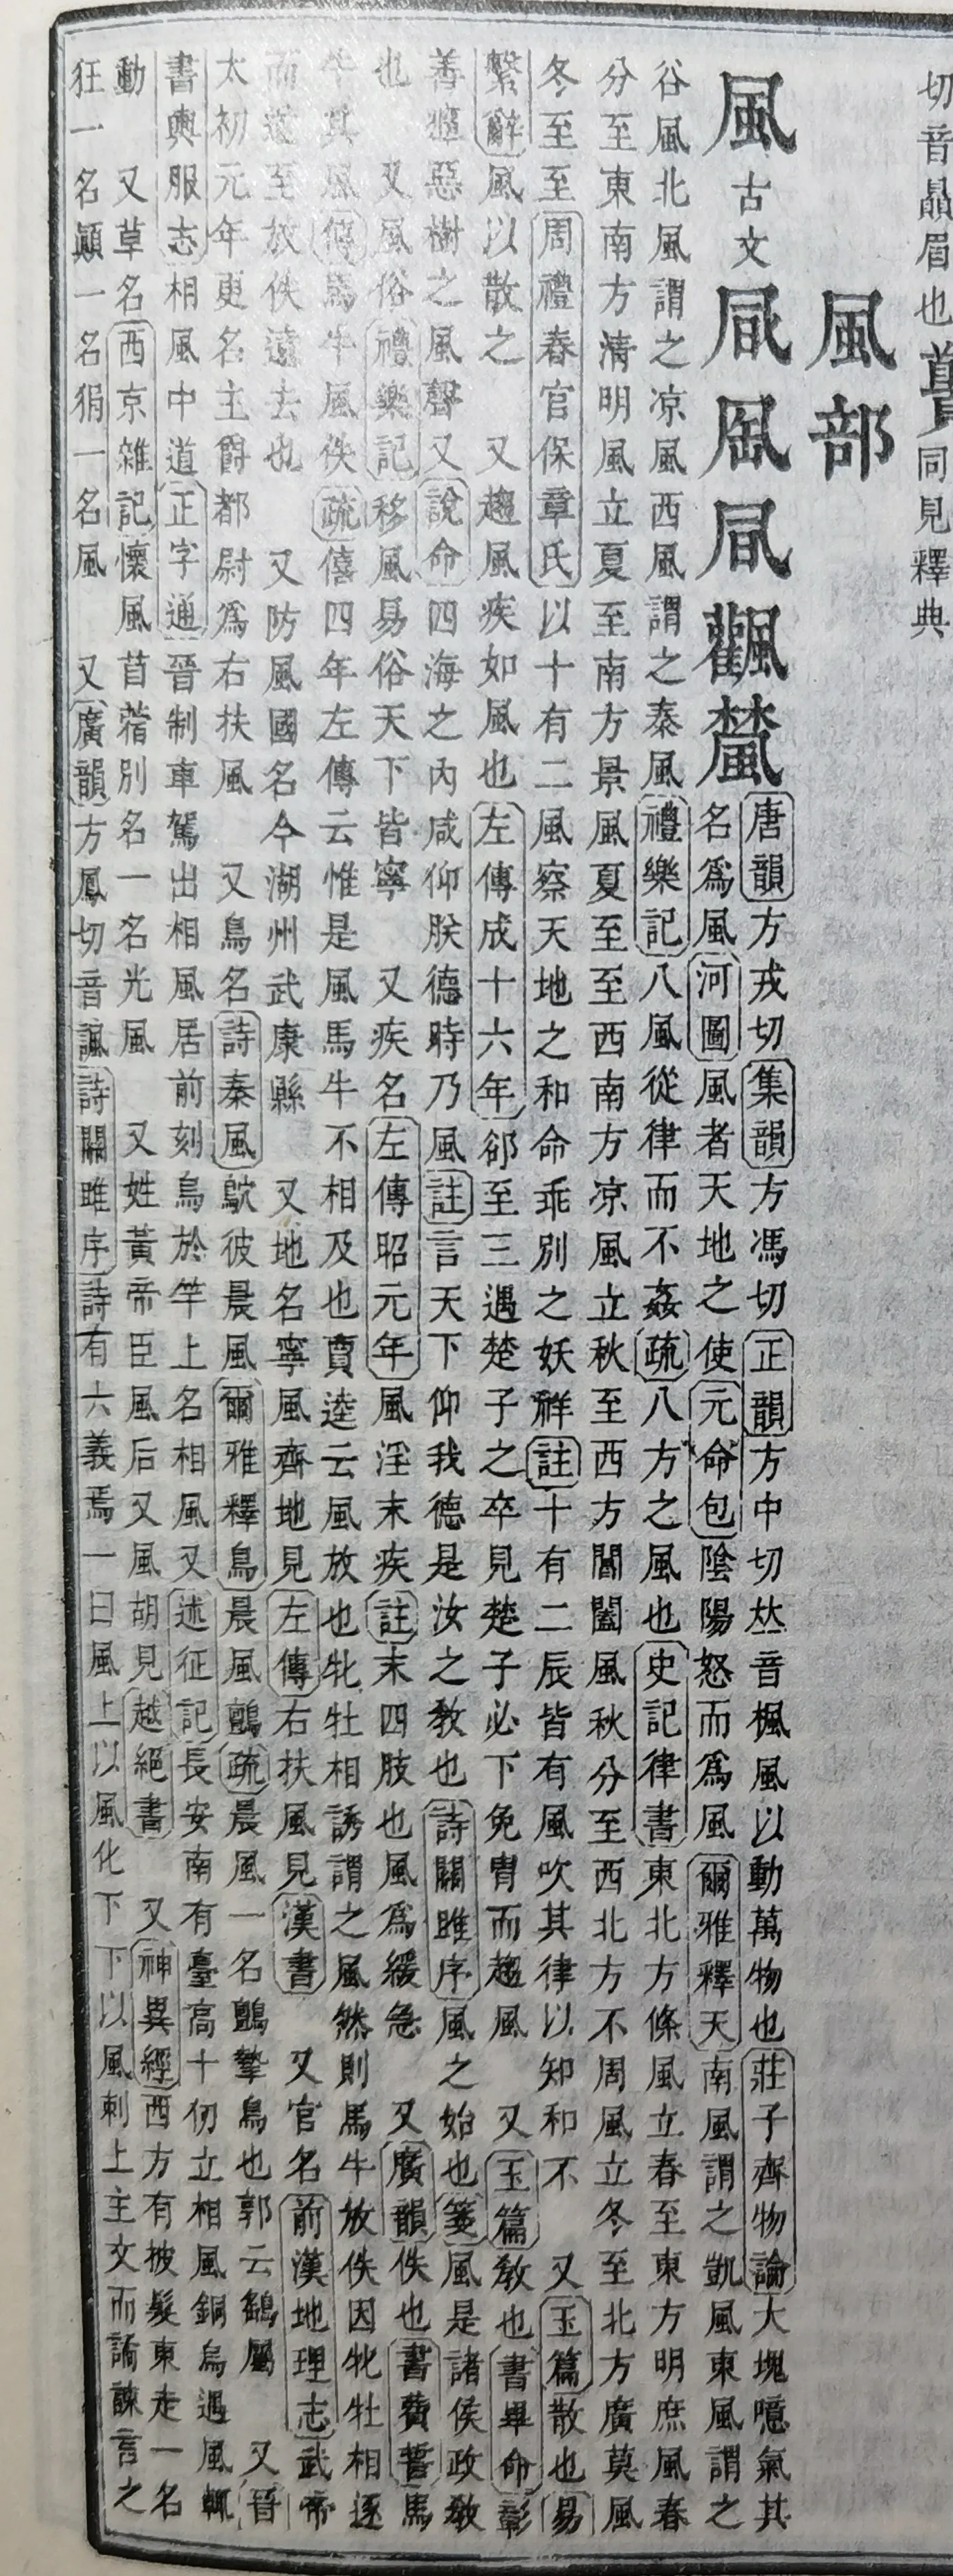 切音贔眉也同見釋典
風部
風古文
唐韻方戎切集韻方馮切正韻方中切𠀤音楓風以動萬物也莊子齊物論大塊噫氣其
名爲風河圖風者天地之使元命包陰陽怒而爲風爾雅釋天南風謂之凱風東風謂之
谷風北風謂之凉風西風謂之泰風禮樂記八風從律而不姦疏八方之風也史記律書東北方條風立春至東方明庶風春
分至東南方清明風立夏至南方景風夏至至西南方凉風立秋至西方閶闔風秋分至西北方不周風立冬至北方廣莫風
冬至至周禮春官保章氏以十有二風察天地之和命乖別之妖祥註十有二辰皆有風吹其律以知和不 又玉篇散也易
繫辭風以散之 又趨風疾如風也左傳成十六年郤至三遇楚子之卒見楚子必下免冑而趨風 又玉篇敎也書畢命彰
善癉惡樹之風聲又說命四海之內咸仰朕德時乃風註言天下仰我德是汝之敎也詩關雎序風之始也箋風是諸侯政敎
也 又風俗禮樂記移風易俗天下皆寧 又疾名左傳昭元年風淫末疾註末四肢也風爲緩急 又廣韻佚也書費誓馬
牛其風傳馬牛風佚疏僖四年左傳云惟是風馬牛不相及也賈逵云風放也牝牡相誘謂之風然則馬牛放佚因牝牡相逐
而遂至放佚遠去也 又防風國名今湖州武康縣 又地名寧風齊地見左傳右扶風見漢書 又官名前漢地理志武帝
太初元年更名主爵都尉爲右扶風 又鳥名詩秦風鴥彼晨風爾雅釋鳥晨風鸇疏晨風一名鸇摯鳥也郭云鷂屬 又晉
書輿服志相風中道正字通晉制車駕出相風居前刻烏於竿上名相風又述征記長安南有臺高十仞立相風銅烏遇風輒
動 又草名西京雜記懷風苜蓿別名一名光風 又姓黃帝臣風后又風胡見越絕書 又神異經西方有披髮東走一名
狂一名顚一名狷一名風 又廣韻方鳳切音諷詩關雎序詩有六義焉一曰風上以風化下下以風刺上主文而譎諫言之